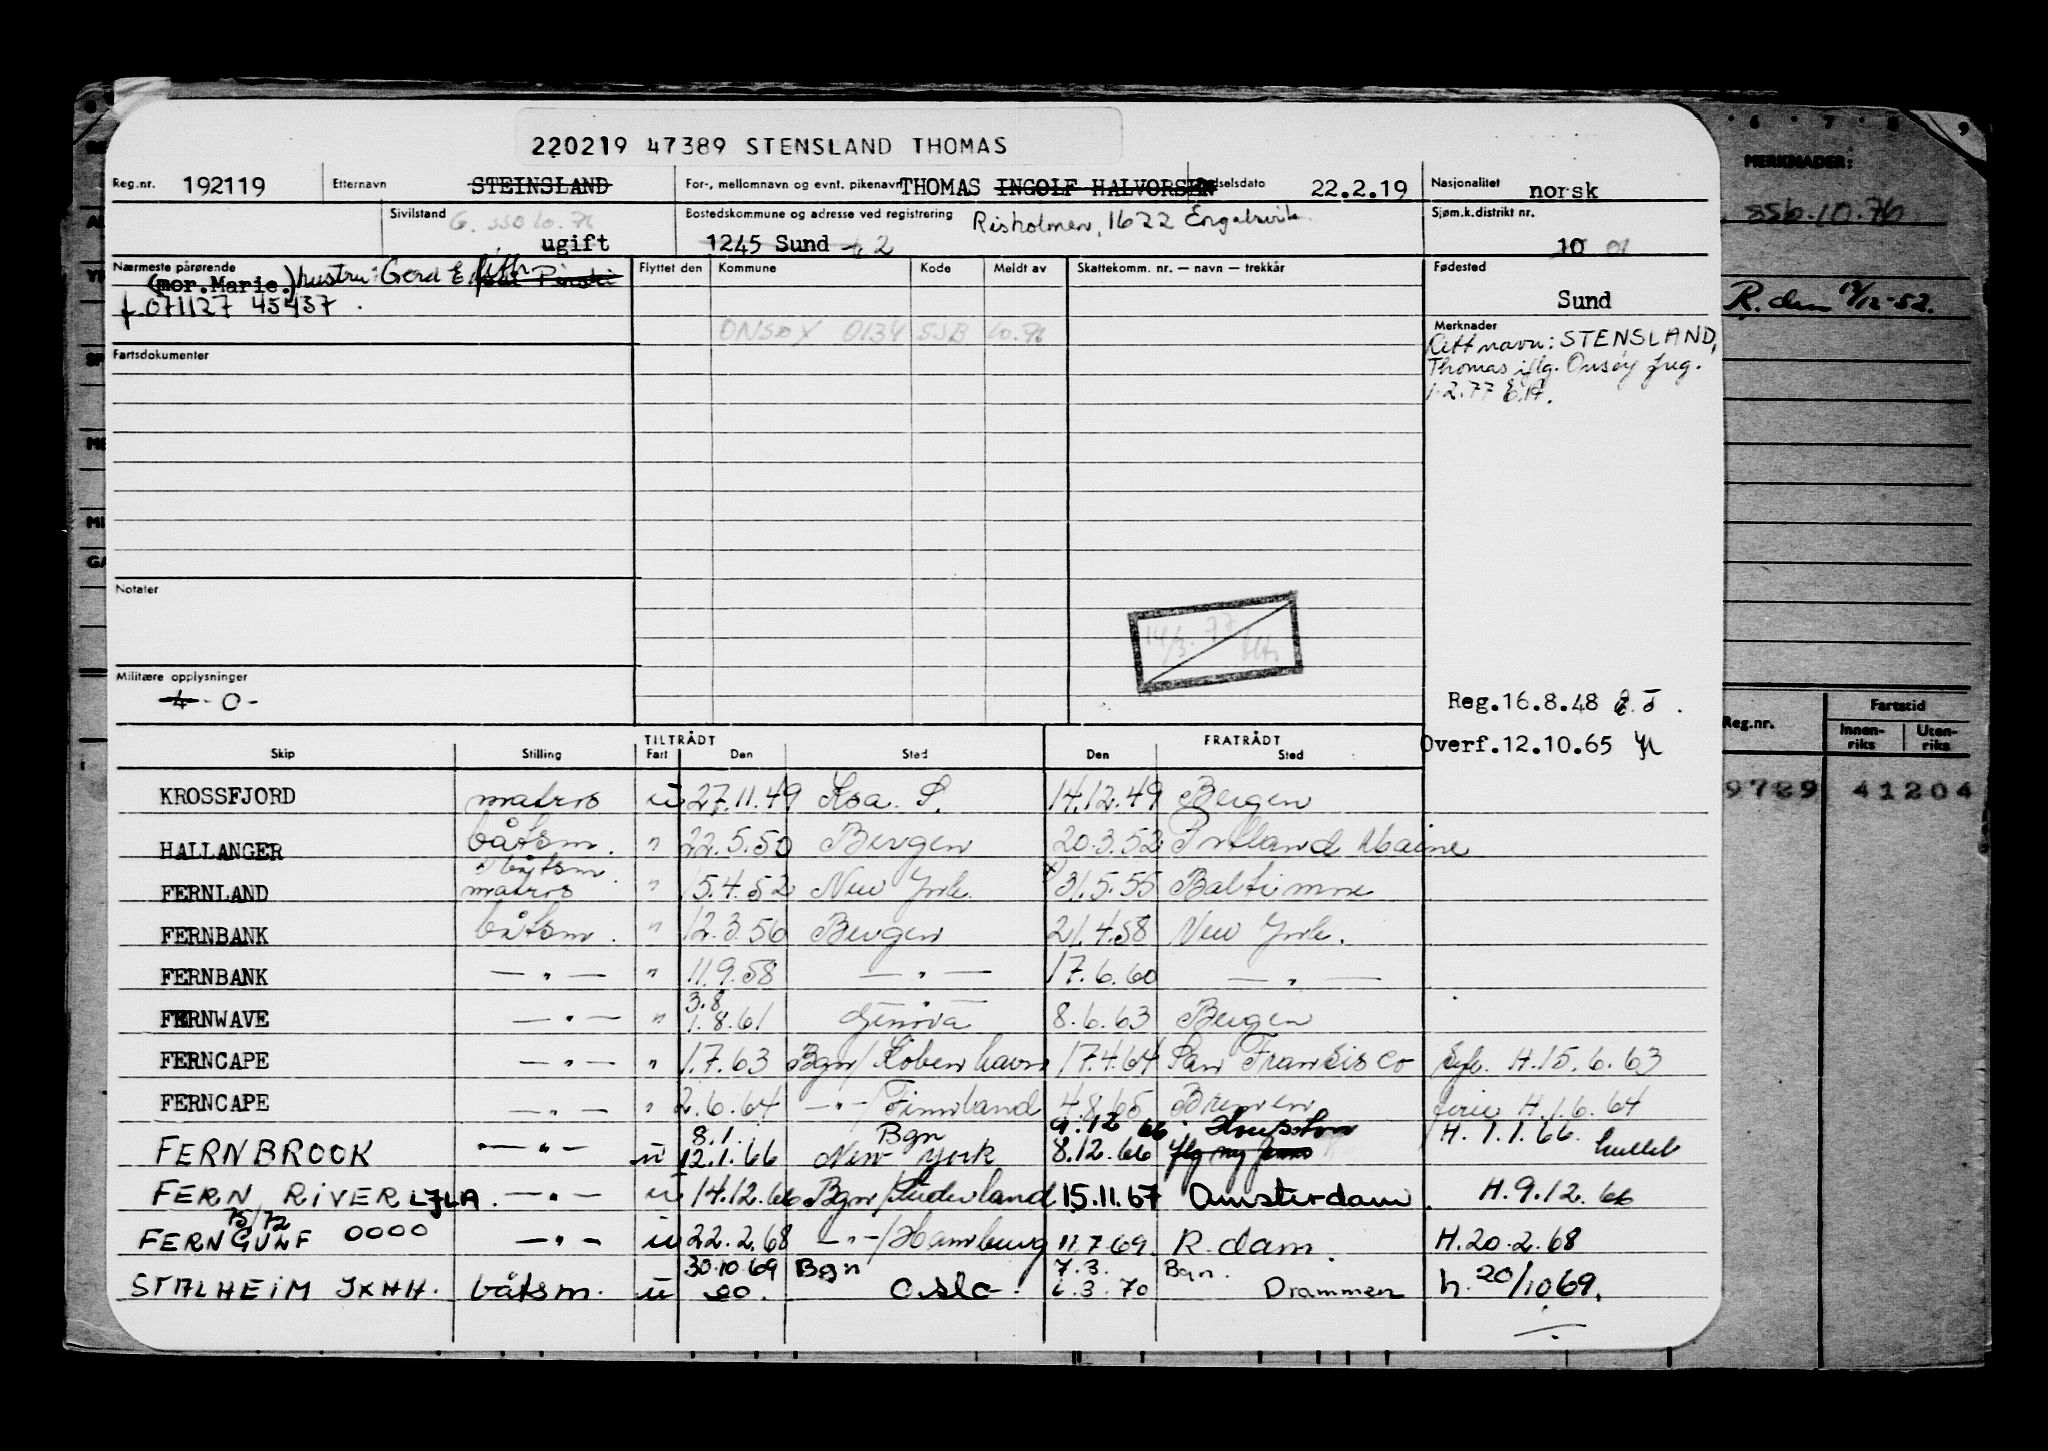 220219 47389 STENSLAND THOMAS
Reg.nr. 192119 Etternavn STEINSLAND For-, mellomnavn og evnt. pikenavn THOMAS INGOLF HALVORSEN selsdato 22.2.19 Nasjonalitet norsk
MERKNADER:
Sivilstand G. SSB 10.76 ugift
Bostedskommune og adresse ved registrering Risholmen, 1622 Engelsvik
1245 Sund
Sjøm.k.distrikt nr. 10 01
SSB.10.76
Nærmeste pårørende (mor.Marie.) hustru: Gerd
f. 071127 45437.
Flyttet den Kommune Kode Meldt av
ONSØY 0134 SSB 10.76
Skattekomm. nr. — navn — trekkår
Fødested Sund
R. den 19/12-52.
Merknader
Rett navn: STENSLAND,
Thomas iflg. Onsøy freg.
1.2.77 E.A.
Fartsdokumenter
Notater
14/3.77
Militære opplysninger
4 - 0 -
Reg.16.8.48
Overf.12.10.65
Reg.nr. Fartstid
Innen-riks Uten-riks
9789 41204
TILTRÅDT FRATRÅDT
Skip Stilling Fart Den Sted Den Sted
KROSSFJORD matros u 27.11.49 Kra. S. 14.12.49 Bergen
HALLANGER båtsm. " 22.5.50 Bergen 20.3.52 Portland Maine
FERNLAND båtsm. matros " 15.4.52 New York 31.5.55 Baltimore
FERNBANK båtsm. " 12.3.56 Bergen 21.4.58 New York.
FERNBANK — " — " 11.9.58 — " — 17.6.60 — " —
FERNWAVE — " — " 3.8 1.8.61 — " — Genova 8.6.63 Bergen
FERNCAPE — " — " 1.7.63 Bgn/København 17.4.64 San Fransisco Syk. H.15.6.63
FERNCAPE — " — " 2.6.64 — " —/Finnland 4.8.65 Bremen ferie H.1.6.64
FERNBROOK — " — u 8.1. 12.1.66 Bgn New York 9.12 66. Houston 8.12.66 iflg ny H. 1.1.66. hullet
FERN RIVER LJLA. — " — u 14.12.66 Bgn/Suderland 15.11.67 Amsterdam. H.9.12.66
75/72
FERNGULF 0000 — " — u 22.2.68 — " —/Hamburg 11.7.69. R.dam. H.20.2.68
STALHEIM JXHH. båtsm. u 30.10 69 Bgn Oslo. 7.3. Bgn. 6.3.70 Drammen h. 20/10 69.